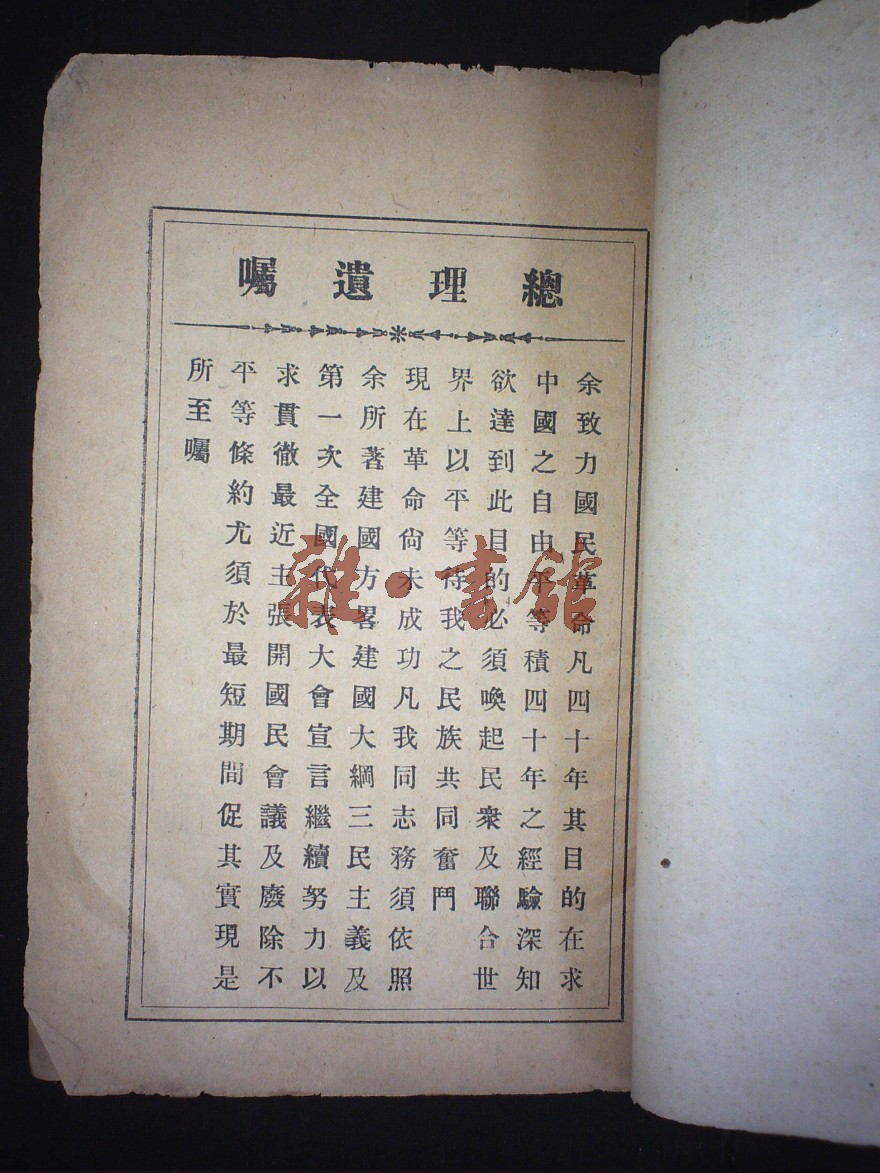 總理遺囑
余致力國民革命凡四十年其目的在求
中國之自由平等積四十年之經驗深知
欲達到此目的必須喚起民衆及聯合世
界上以平等待我之民族共同奮鬥
現在革命尙未成功凡我同志務須依照
余所著建國方畧建國大綱三民主義及
第一次全國代表大會宣言繼續努力以
求貫徹最近主張開國民會議及廢除不
平等條約尤須於最短期間促其實現是
所至囑
雜·書館